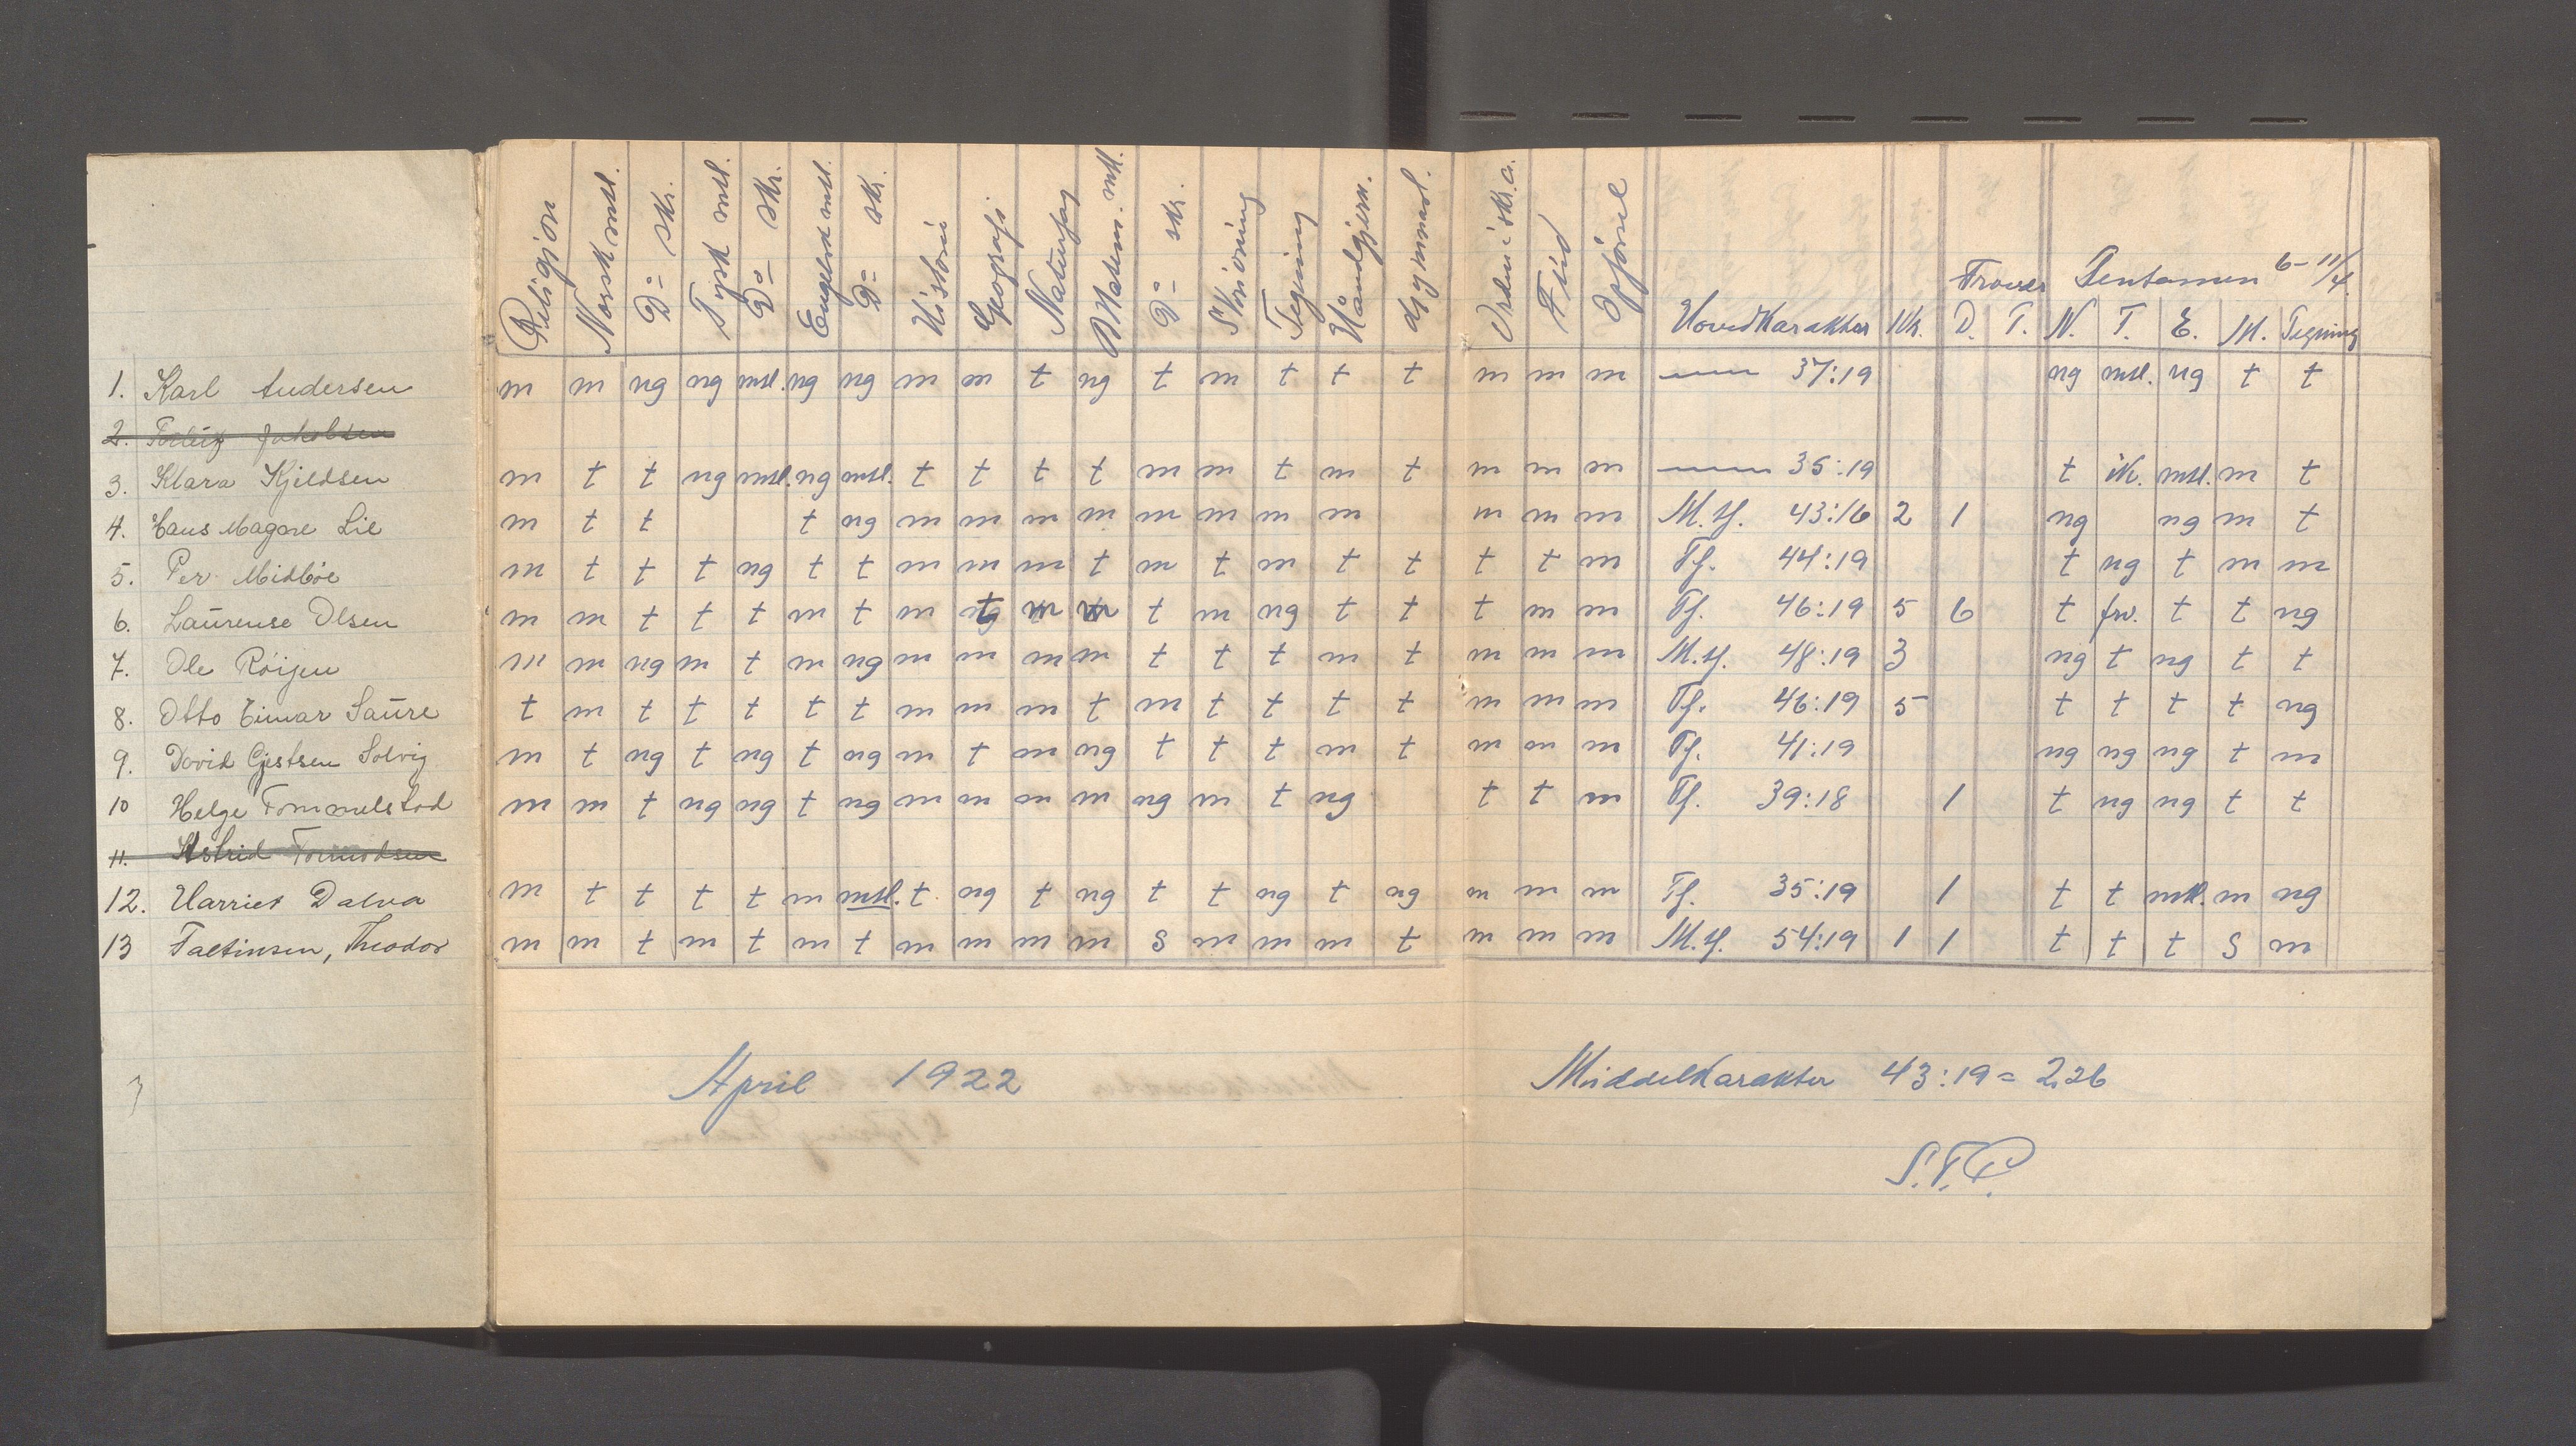 Religion Norsk mtl. Do skr. Tysk mtl. Do skr. Engelsk mtl. Do skr. Historie Geografi Naturfag Matem. mtl. Do skr. Skrivning Tegning Håndgjern. Gymnast. Orden i skr.a. Flid Opførsel Hovedkarakter Nr. D. T. N. T. E. M. Tegning
Fravær Tentamen 6-11/4
1. Karl Andersen m m ng ng mtl. ng ng m m t ng t m t t t m m m 37:19 ng mtl. ng t t
2.
3. Klara Kjeldsen m t t ng mtl. ng mtl. t t t t m m t m t m m m 35:19 t ik. mtl. m t
4. Hans Magare Lie m t t t ng m m m m m m m m m m m M.g. 43:16 2 1 ng ng m t
5. Per Midbøe m t t t ng t t m m m t m t m t t t t m Tf. 44:19 t ng t m m
6. Laurense Olsen m m t t t m t m t m m t m ng t t t m m Tf. 46:19 5 6 t frv. t t ng
7. Ole Röijen m m ng m t m ng m m m m t t t m t m m m M.g. 48:19 3 ng t ng t t
8. Otto Einar Saure t m t t t t t m m m t m t t t t m m m Tf. 46:19 5 t t t t ng
9. David Gjestsen Solvig m t ng t ng t ng m t m ng t t t m t m m m Tf. 41:19 ng ng ng t m
10 Helge Tommelstad m m t ng ng t ng m m m m ng m t ng t t m Tf. 39:18 1 t ng ng t t
11. Astrid Tormodsen
12. Harriet Dalva m t t t t m mtl. t ng t ng t t ng t ng m m m Tf. 35:19 1 t t mtl. m ng
13 Taltinsen, Theodor m m t m t m t m m m m s m m m t m m m M.g. 54:19 1 1 t t t s m
April 1922
Middelkarakter 43:19 = 2,26
S.T.P.